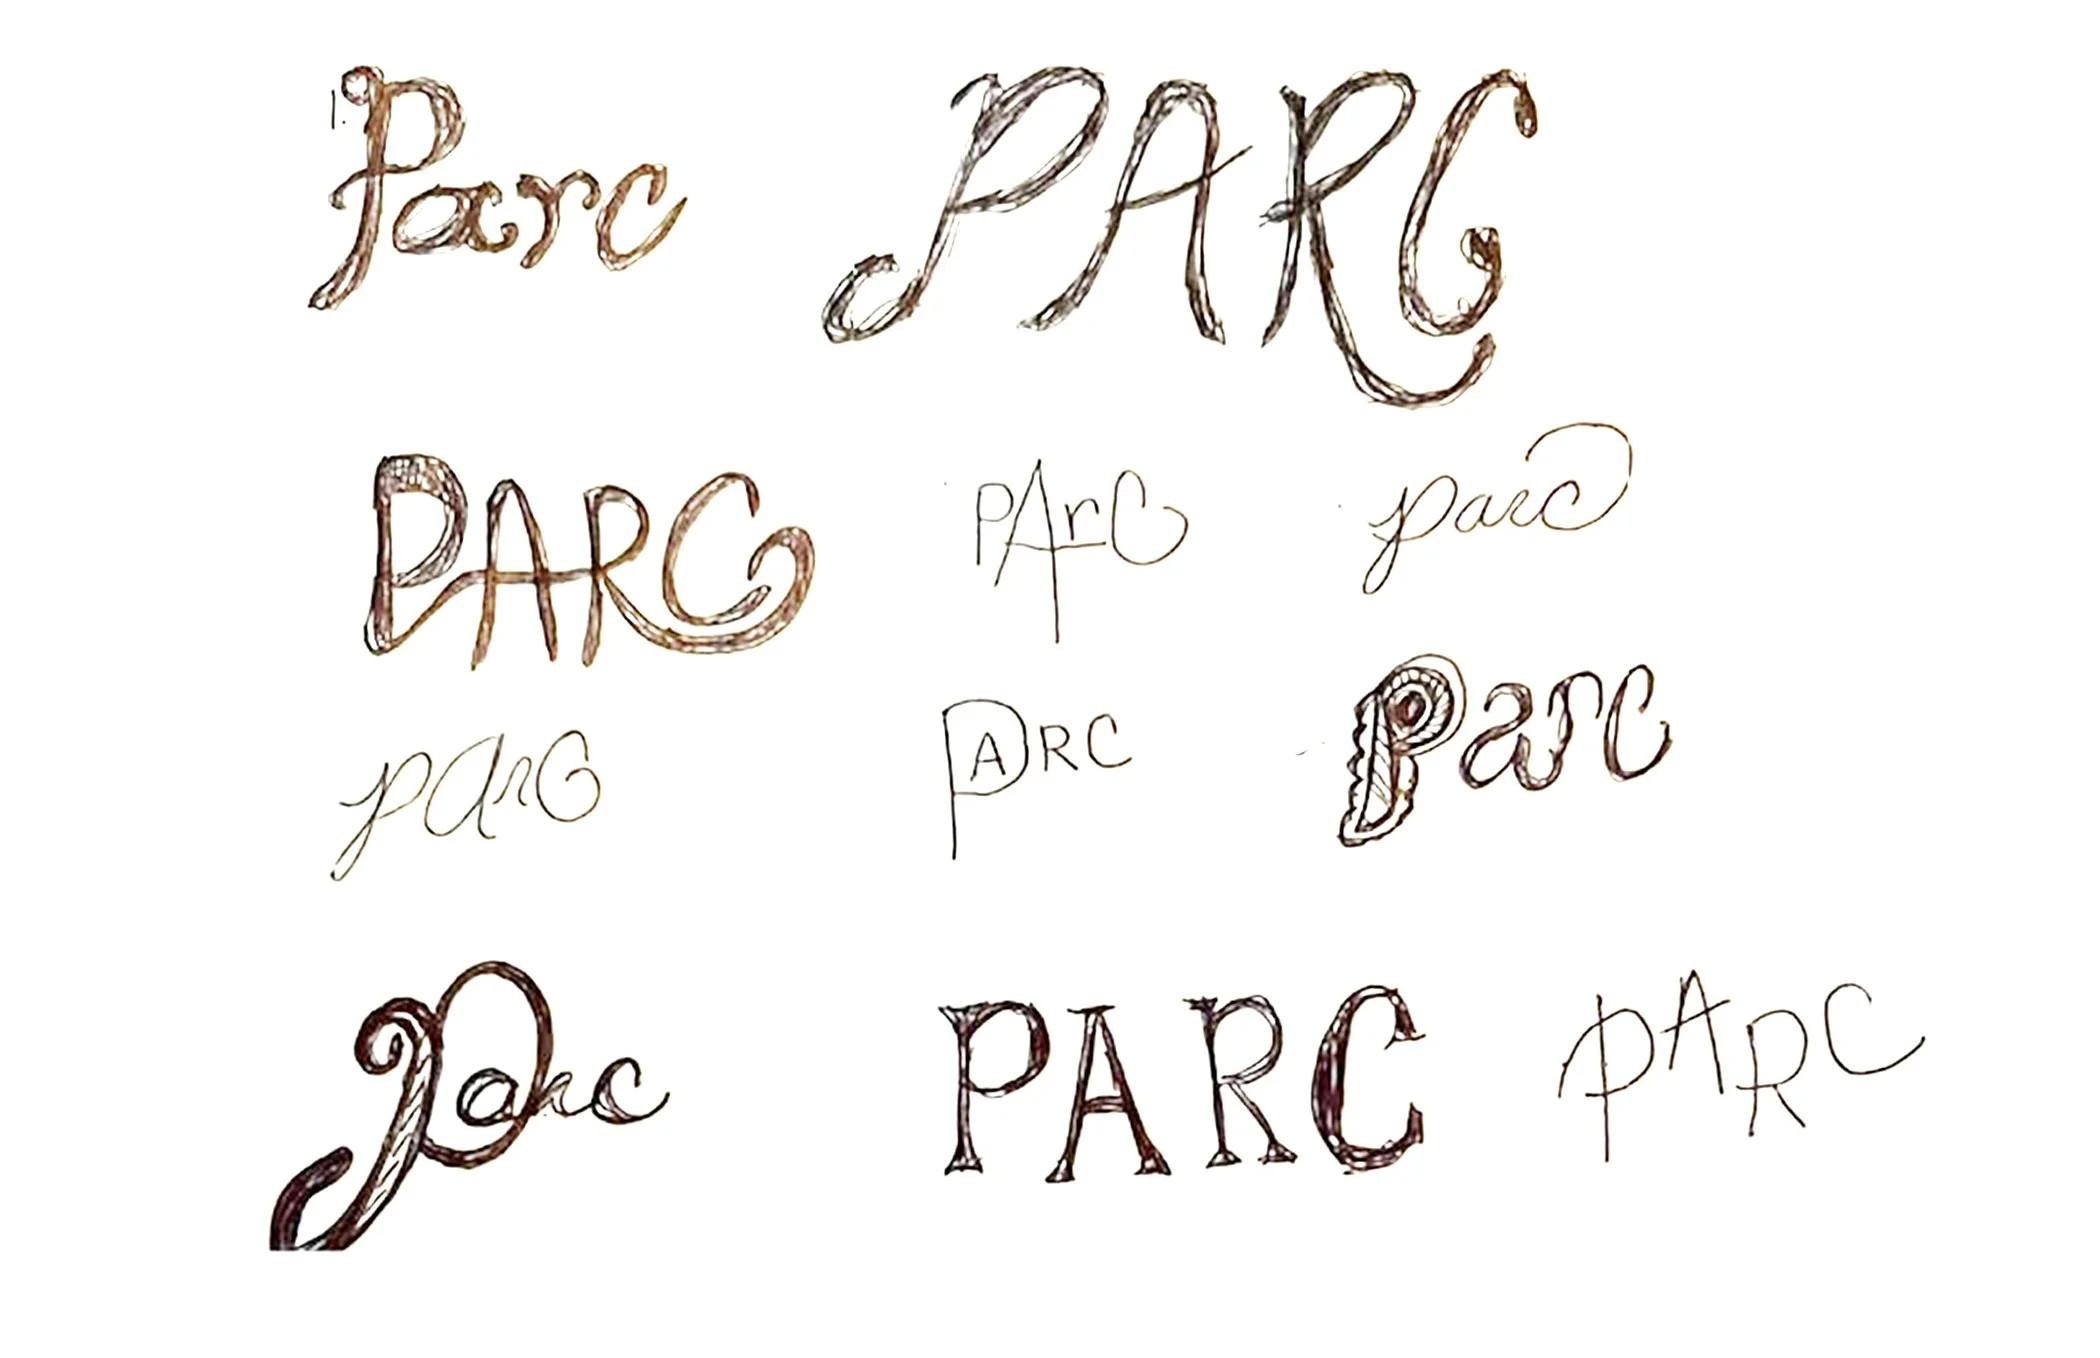 1. Parc PARC
PARC PArC parc
pArC PARC Parc
Parc PARC PARC